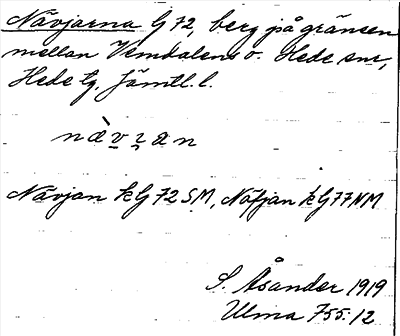 Nävjarna G 72, berg på gränsen
mellan Vemdalens o. Hede snr,
Hede tg. Jämtl. l.
nàvɿan
Nävjan kG 72 SM, Nöfjan kG 77 NM
S. Åsander 1919
Ulma 755:12